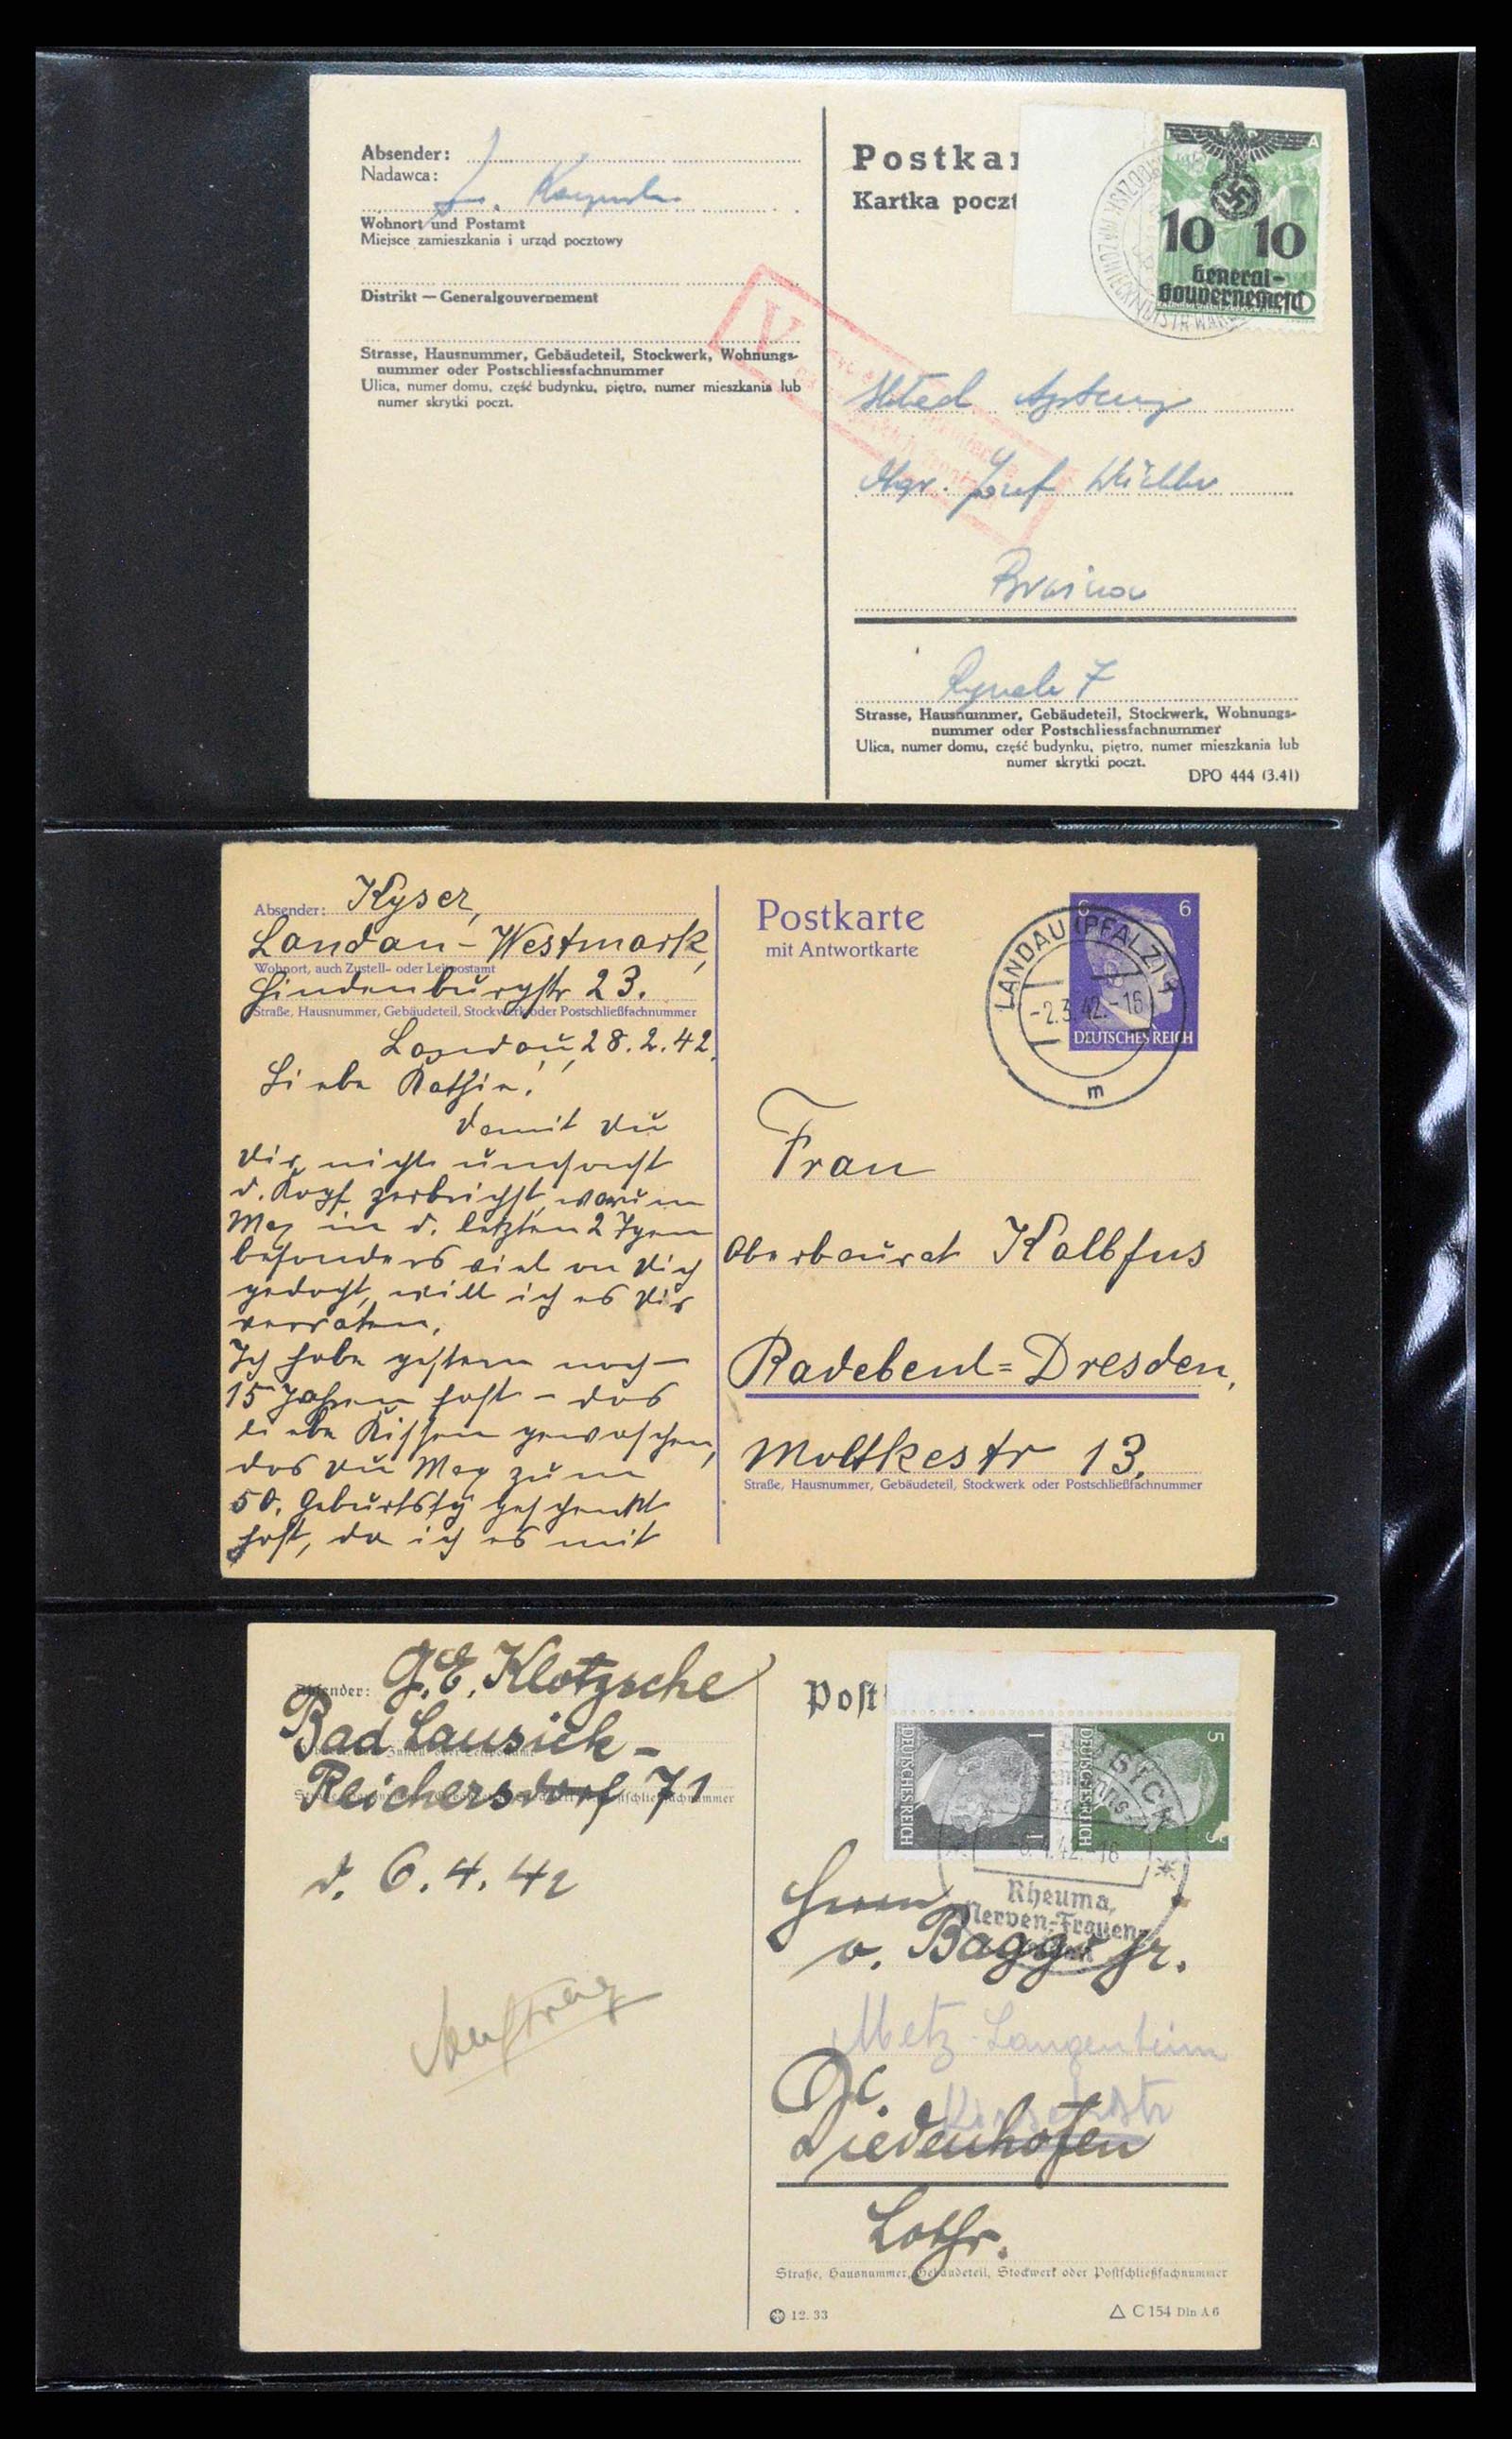 Absender:
Nadawca:
Wohnort und Postamt
Miejsce zamieszkania i urząd pocztowy
Distrikt — Generalgouvernement
Strasse, Hausnummer, Gebäudeteil, Stockwerk, Wohnungs-
nummer oder Postschliessfachnummer
Ulica, numer domu, część budynku, piętro, numer mieszkania lub
numer skrytki poczt.
V
Postka
Kartka poczt
10 10
General-
Gouvernement
Mgr. Józef
Strasse, Hausnummer, Gebäudeteil, Stockwerk, Wohnungs-
nummer oder Postschliessfachnummer
Ulica, numer domu, część budynku, piętro, numer mieszkania lub
numer skrytki poczt.
DPO 444 (3.41)
Absender: Kyser,
Landau-Westmark,
Wohnort, auch Zustell- oder Leitpostamt
Hindenburgstr 23.
Straße, Hausnummer, Gebäudeteil, Stockwerk oder Postschließfachnummer
Landau, 28.2.42.
Liebe Kathie!
Damit du
dir nicht umsonst
d. Kopf zerbrichst, warum
Max in d. letzten 2 Tgen
besonders viel an dich
gedacht, will ich es dir
verraten.
Ich habe gestern nach
15 Jahren fast – das
liebe Kissen gewaschen,
das du Max zum
50. Geburtstg geschenkt
hast, da ich es mit
Postkarte
mit Antwortkarte
6 6
DEUTSCHES REICH
LANDAU (PFALZ) 1
-2.3.42.-16
m
Frau
Oberbaurat Kalbfus
Radebeul=Dresden,
Moltkestr 13.
Straße, Hausnummer, Gebäudeteil, Stockwerk oder Postschließfachnummer
Absender: G.E. Klotzsche
Bad Lausick-
Reichersdorf 71
d. 6.4.42
Post
1 1
DEUTSCHES REICH
5 5
DEUTSCHES REICH
Rheuma,
Nerven-Frauen-
Herrn
v. Baggo jr.
Metz-Langenheim
Diedenhofen
Lothr.
Straße, Hausnummer, Gebäudeteil, Stockwerk oder Postschließfachnummer
12. 33
C 154 Din A 6